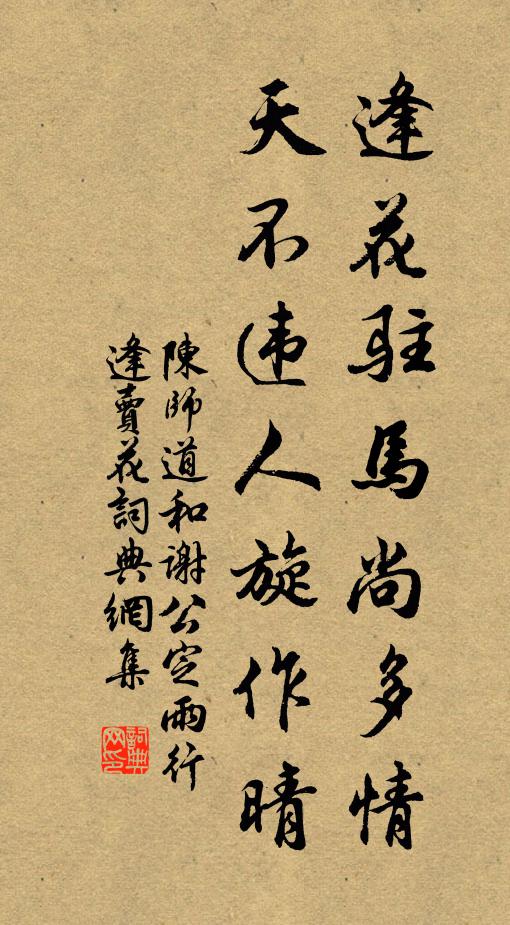 逢花駐馬尚多情
天不违人旋作晴
陳師道和謝公定雨行
逢賣花詞典網集
詞典网印